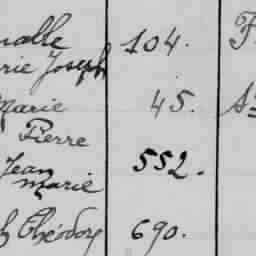 104.
Joseph
Marie 45.
Pierre
Jean 552.
Marie
Théodore 690.